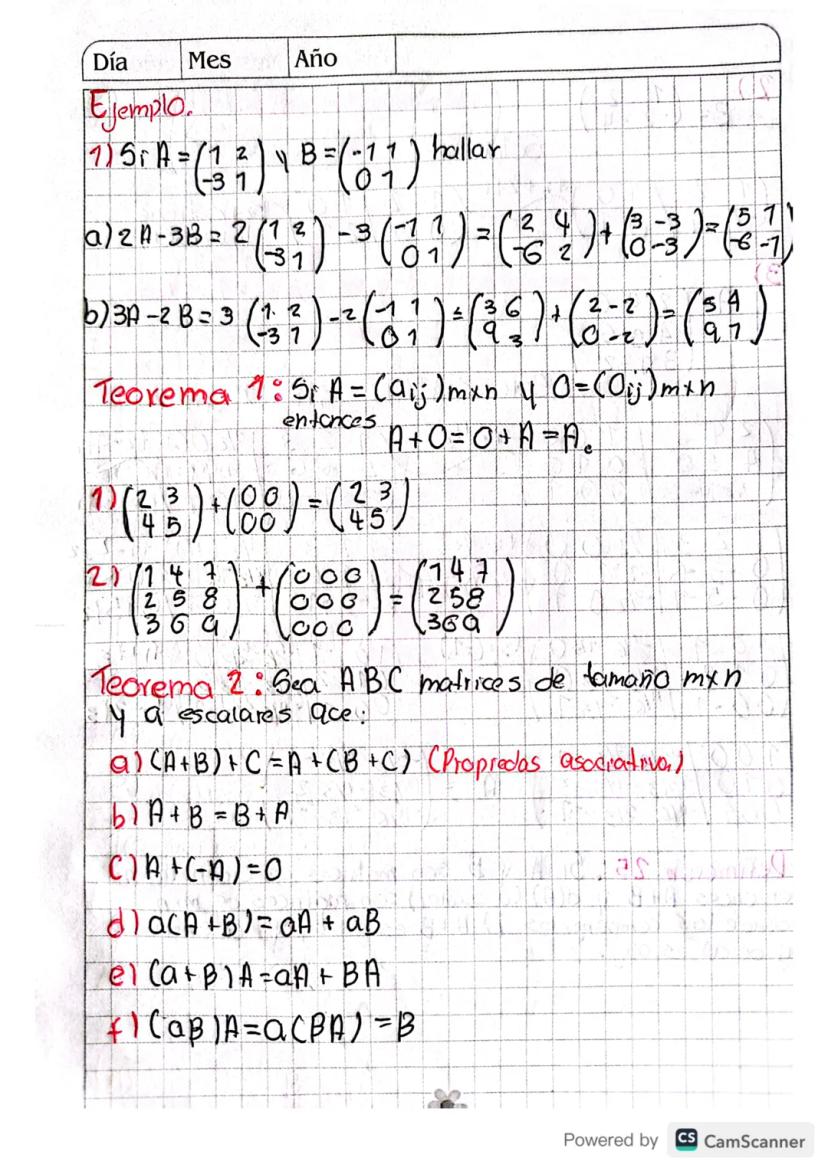 Día Mes Año
Ejemplo.
1) Si A = (1 2 / -3 1) y B = (-1 1 / 0 1) hallar
a) 2A - 3B = 2 (1 2 / -3 1) - 3 (-1 1 / 0 1) = (2 4 / -6 2) + (3 -3 / 0 -3) = (5 1 / -6 -1)
b) 3A - 2B = 3 (1 2 / -3 1) - 2 (-1 1 / 0 1) = (3 6 / 9 3) + (2 -2 / 0 -2) = (5 4 / 9 1)
Teorema 1: Si A = (aij)mxn y O = (Oij)mxn
entonces
A + O = O + A = A.
1) (2 3 / 4 5) + (0 0 / 0 0) = (2 3 / 4 5)
2) (1 4 7 / 2 5 8 / 3 6 9) + (0 0 0 / 0 0 0 / 0 0 0) = (1 4 7 / 2 5 8 / 3 6 9)
Teorema 2: Sea A B C matrices de tamaño mxn
y a escalares ace:
a) (A+B) + C = A + (B + C) (Propiedas asociativa)
b) A + B = B + A
c) A + (-A) = 0
d) a(A + B) = aA + aB
e) (a + B) A = aA + BA
f) (aB) A = a(BA) = B
Powered by CS CamScanner